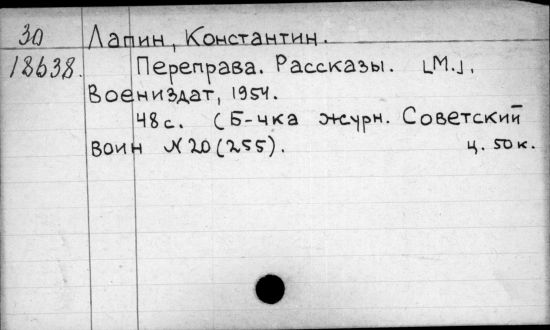 30 Лапин, Константин.
18638. Переправа. Рассказы. [М.],
Воениздат, 1954.
48 с. (Б-чка журн. Советский
воин № 20 (255). ц. 50 к.